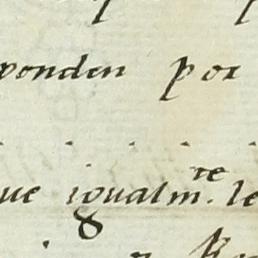 ponden por
ue igualm.te le